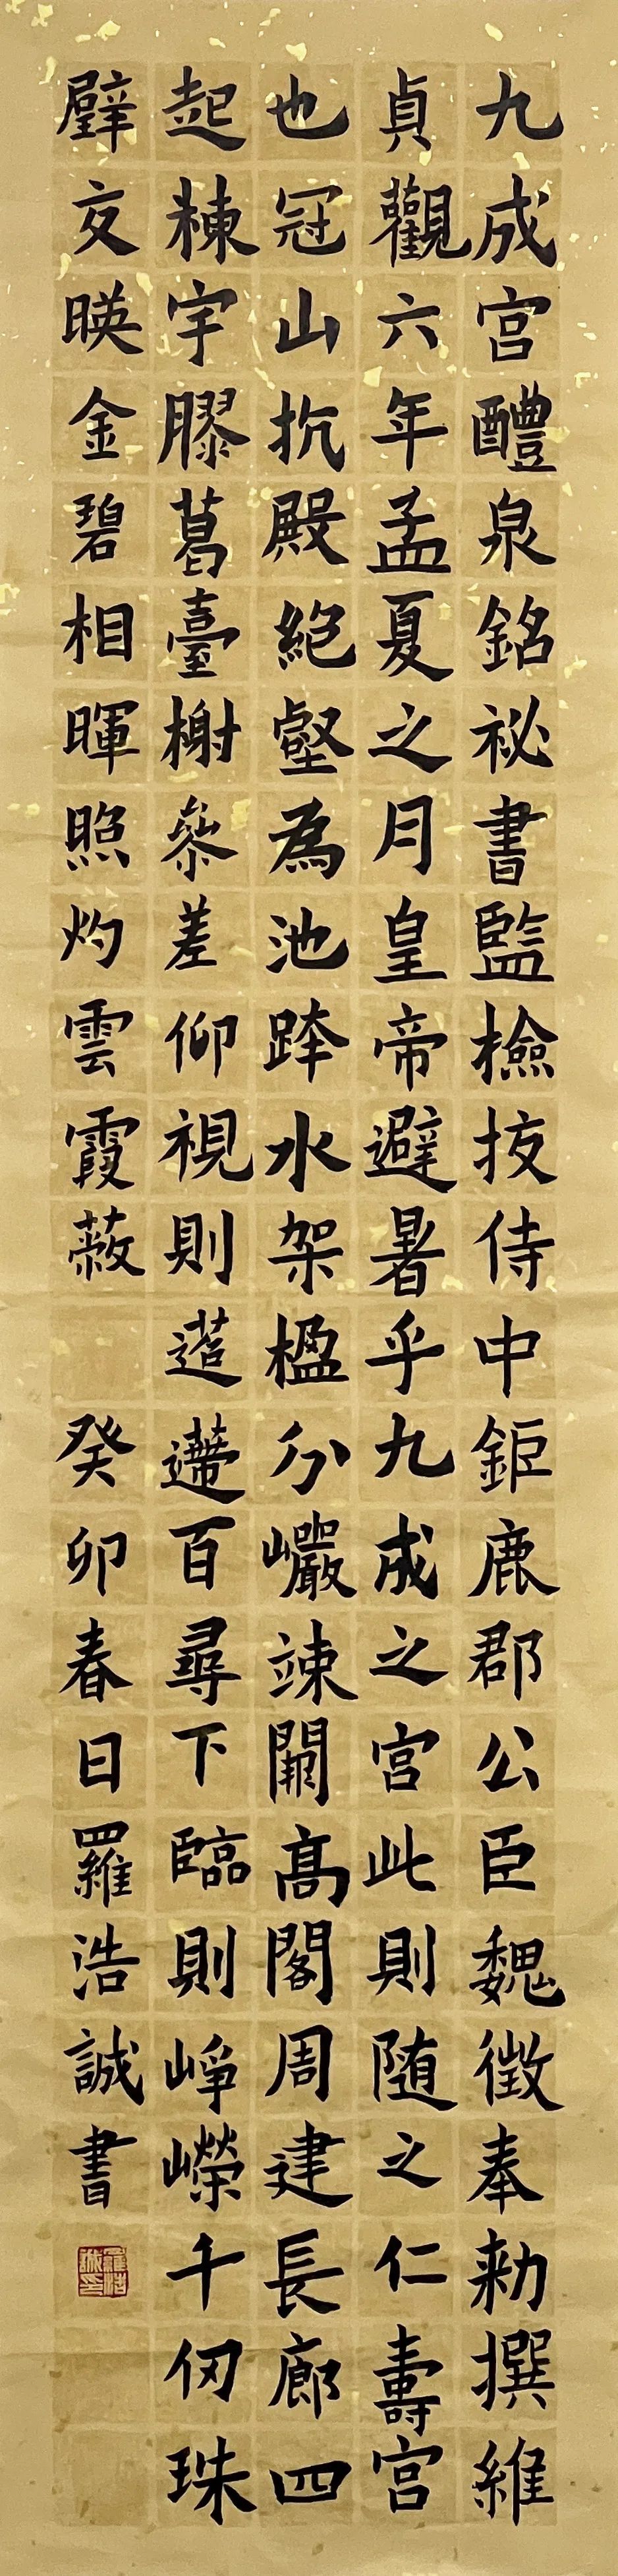 九成宮醴泉銘祕書監檢挍侍中鉅鹿郡公臣魏徵奉勑撰維
貞觀六年孟夏之月皇帝避暑乎九成之宮此則随之仁壽宮
也冠山抗殿絕壑為池跨水架楹分巖竦闕高閣周建長廊四
起棟宇膠葛臺榭參差仰視則迢遰百尋下臨則崢嶸千仞珠
璧交暎金碧相暉照灼雲霞蔽
癸卯春日羅浩誠書